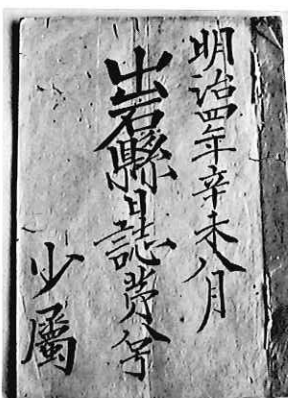 明治四年辛未八月
出石縣日誌第八号
少屬